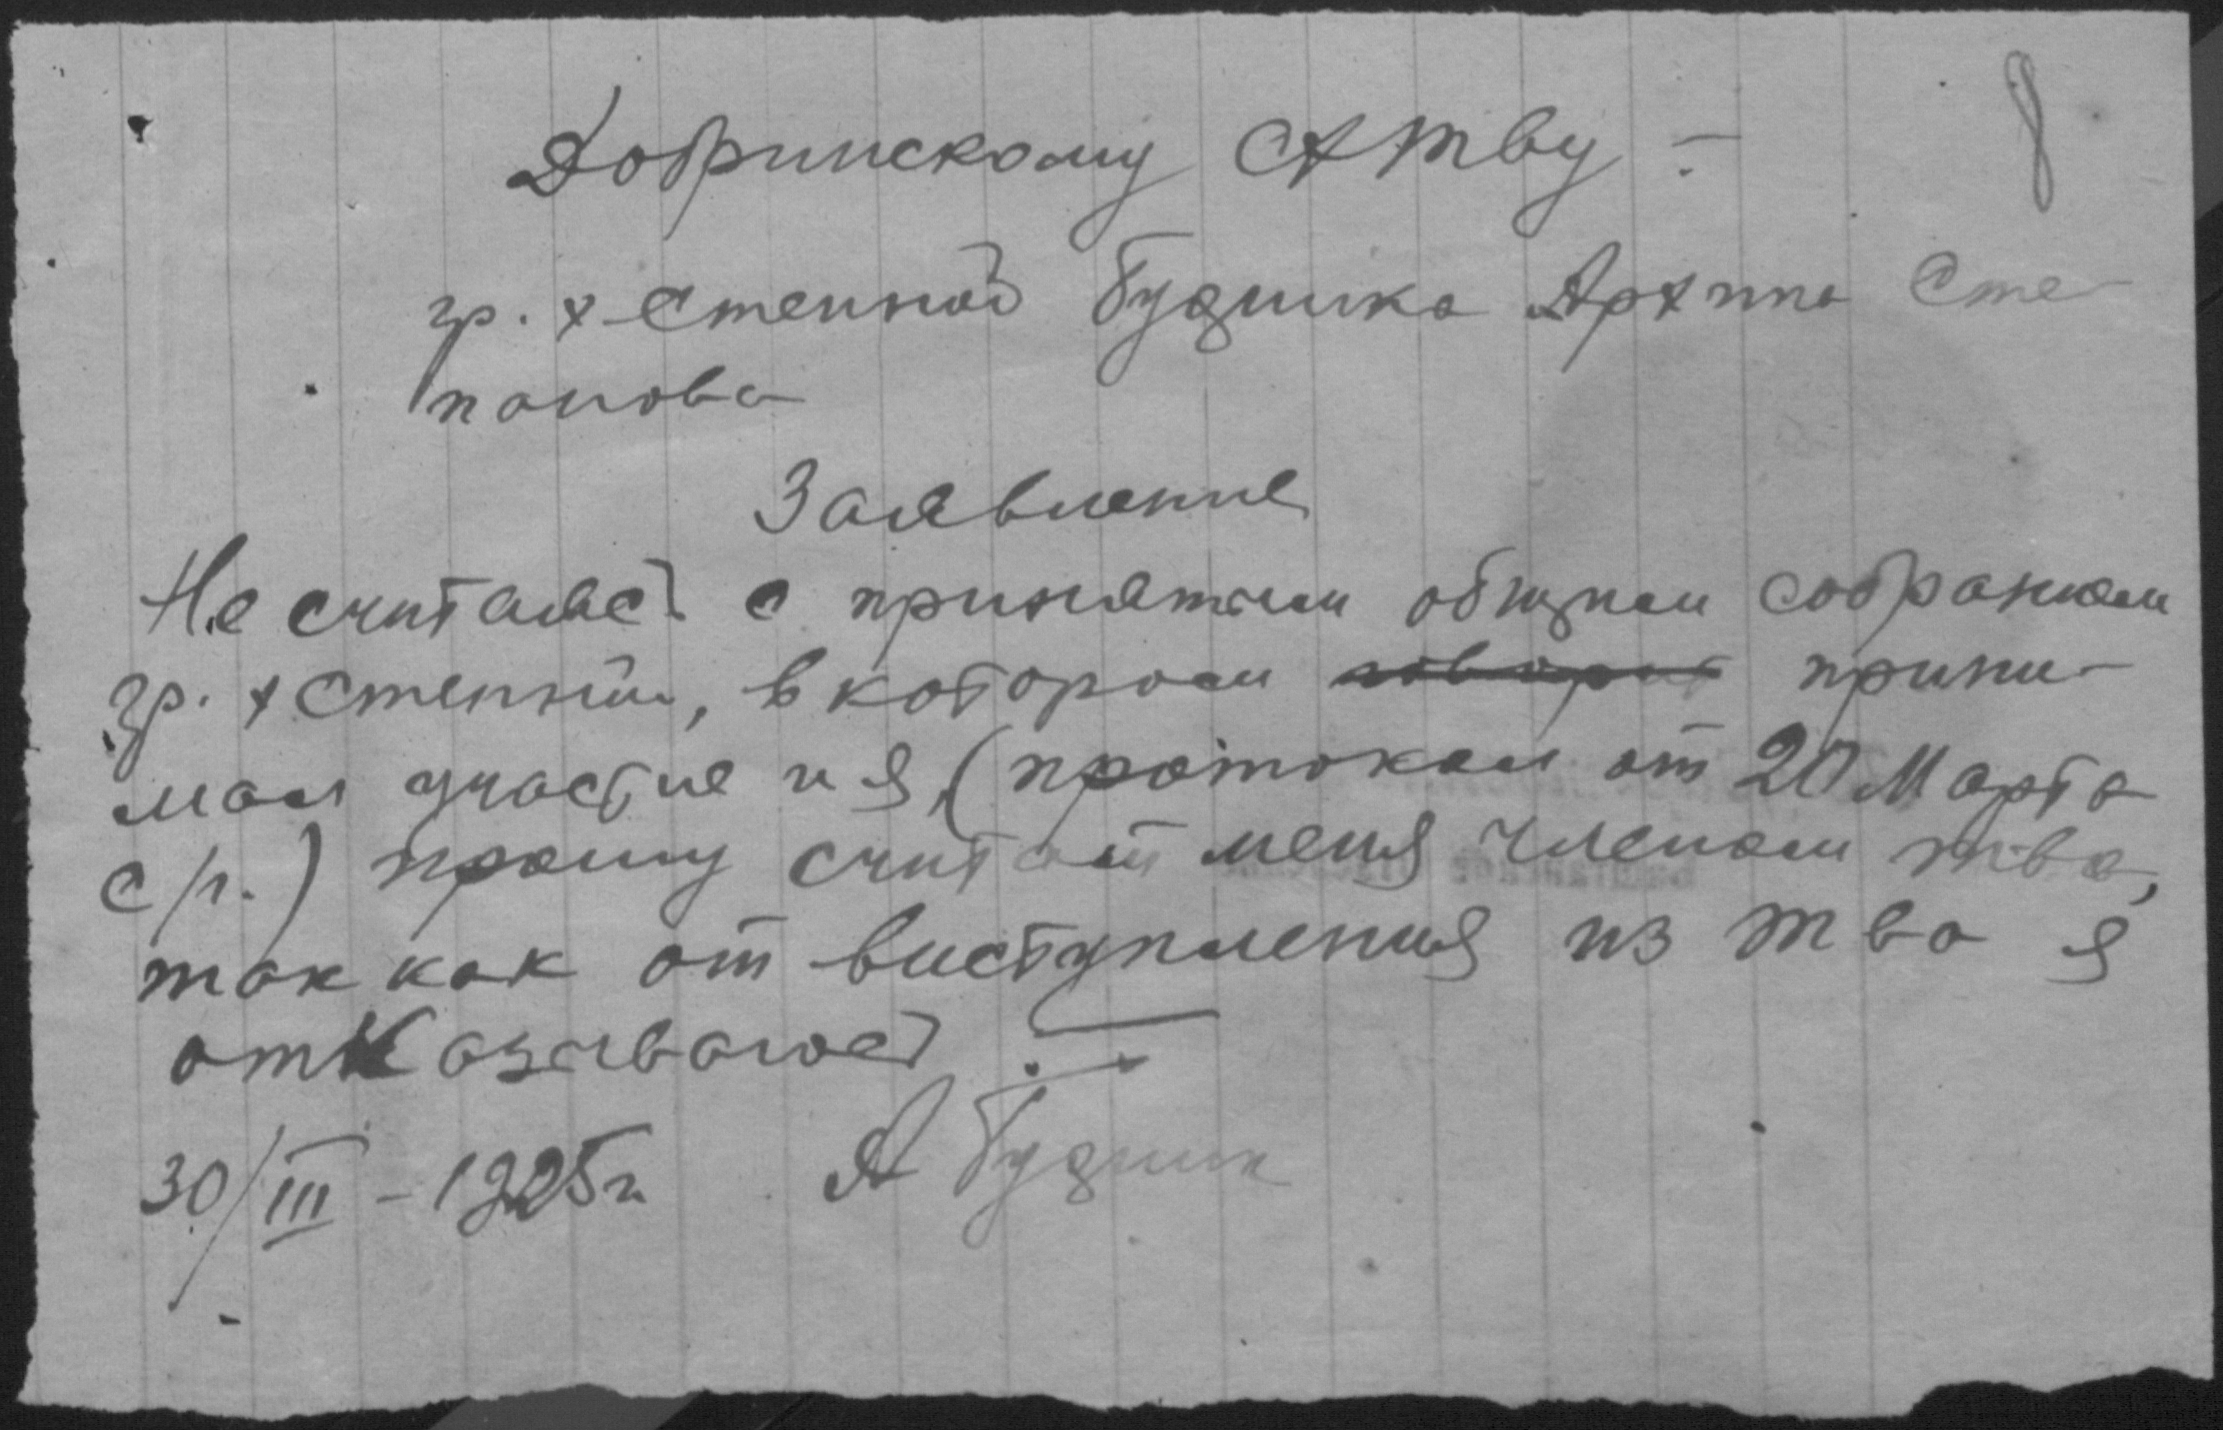 8
Добринскому СХ Тву -
гр. х Степной Будника Архипа Сте-
панова
Заявление
Не считаясь с принятым общим собранием
гр. х Степный, в котором прини-
мал участие и я, (протокол от 20 Марта
с/г.) прошу считат меня членом тва,
так как от виступления из тва я
отказываюсь.
30/III - 1925 г. А Будник